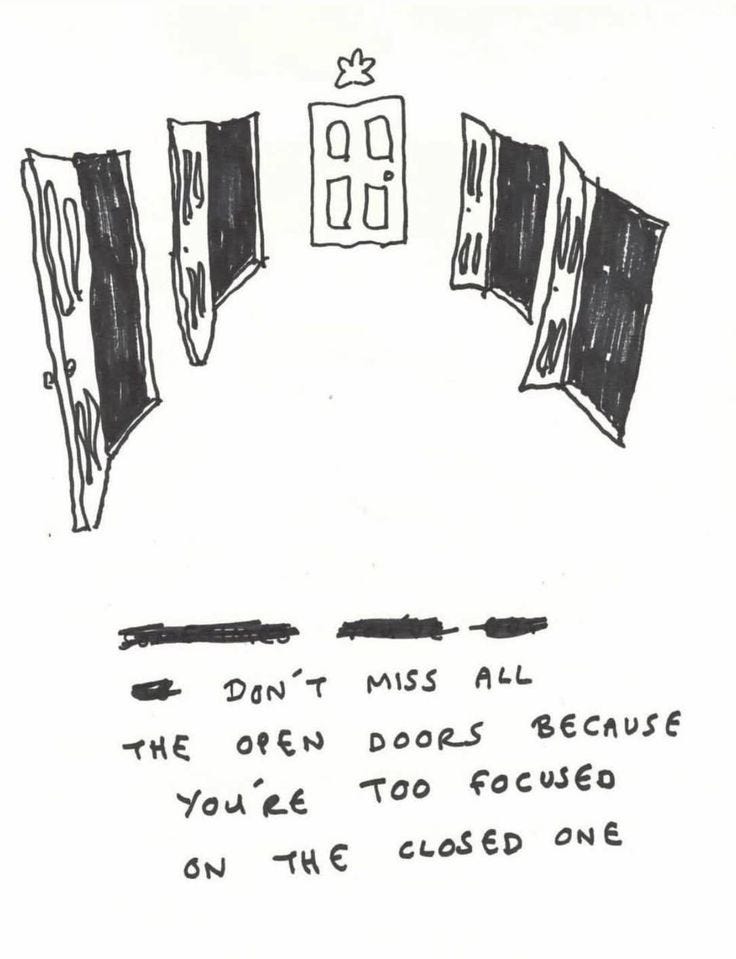 DON'T MISS ALL
THE OPEN DOORS BECAUSE
YOU'RE TOO FOCUSED
ON THE CLOSED ONE